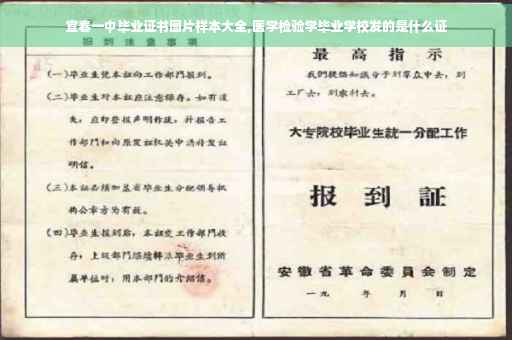 宜春一中毕业证书图片样本大全,医学检验学毕业学校发的是什么证
报到注意事项
(一)毕业生凭本证向工作部门报到。
(二)毕业生对本证应注意保存。如有遗
失,应即登报声明作废,并报告工
作部门和向原发证机关申请补发证
明信。
(三)本证必须加盖省毕业生分配领导机
构公章方为有效。
(四)毕业生报到后,本证交工作部门收
存;上级部门继续转派毕业生到所
属单位时,用本部门的介绍信。
最高指示
我们提倡知识分子到群众中去,到
工厂去,到农村去。
大专院校毕业生统一分配工作
报到证
安徽省革命委员会制定
一九 年 月 日